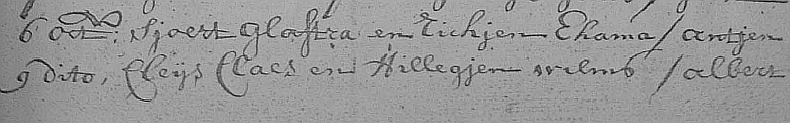 6 octr: Sjoert Glastra en Tichjen Ekama / antjen
9 dito, Cleijs Claes en Hillegjen wilms / albert